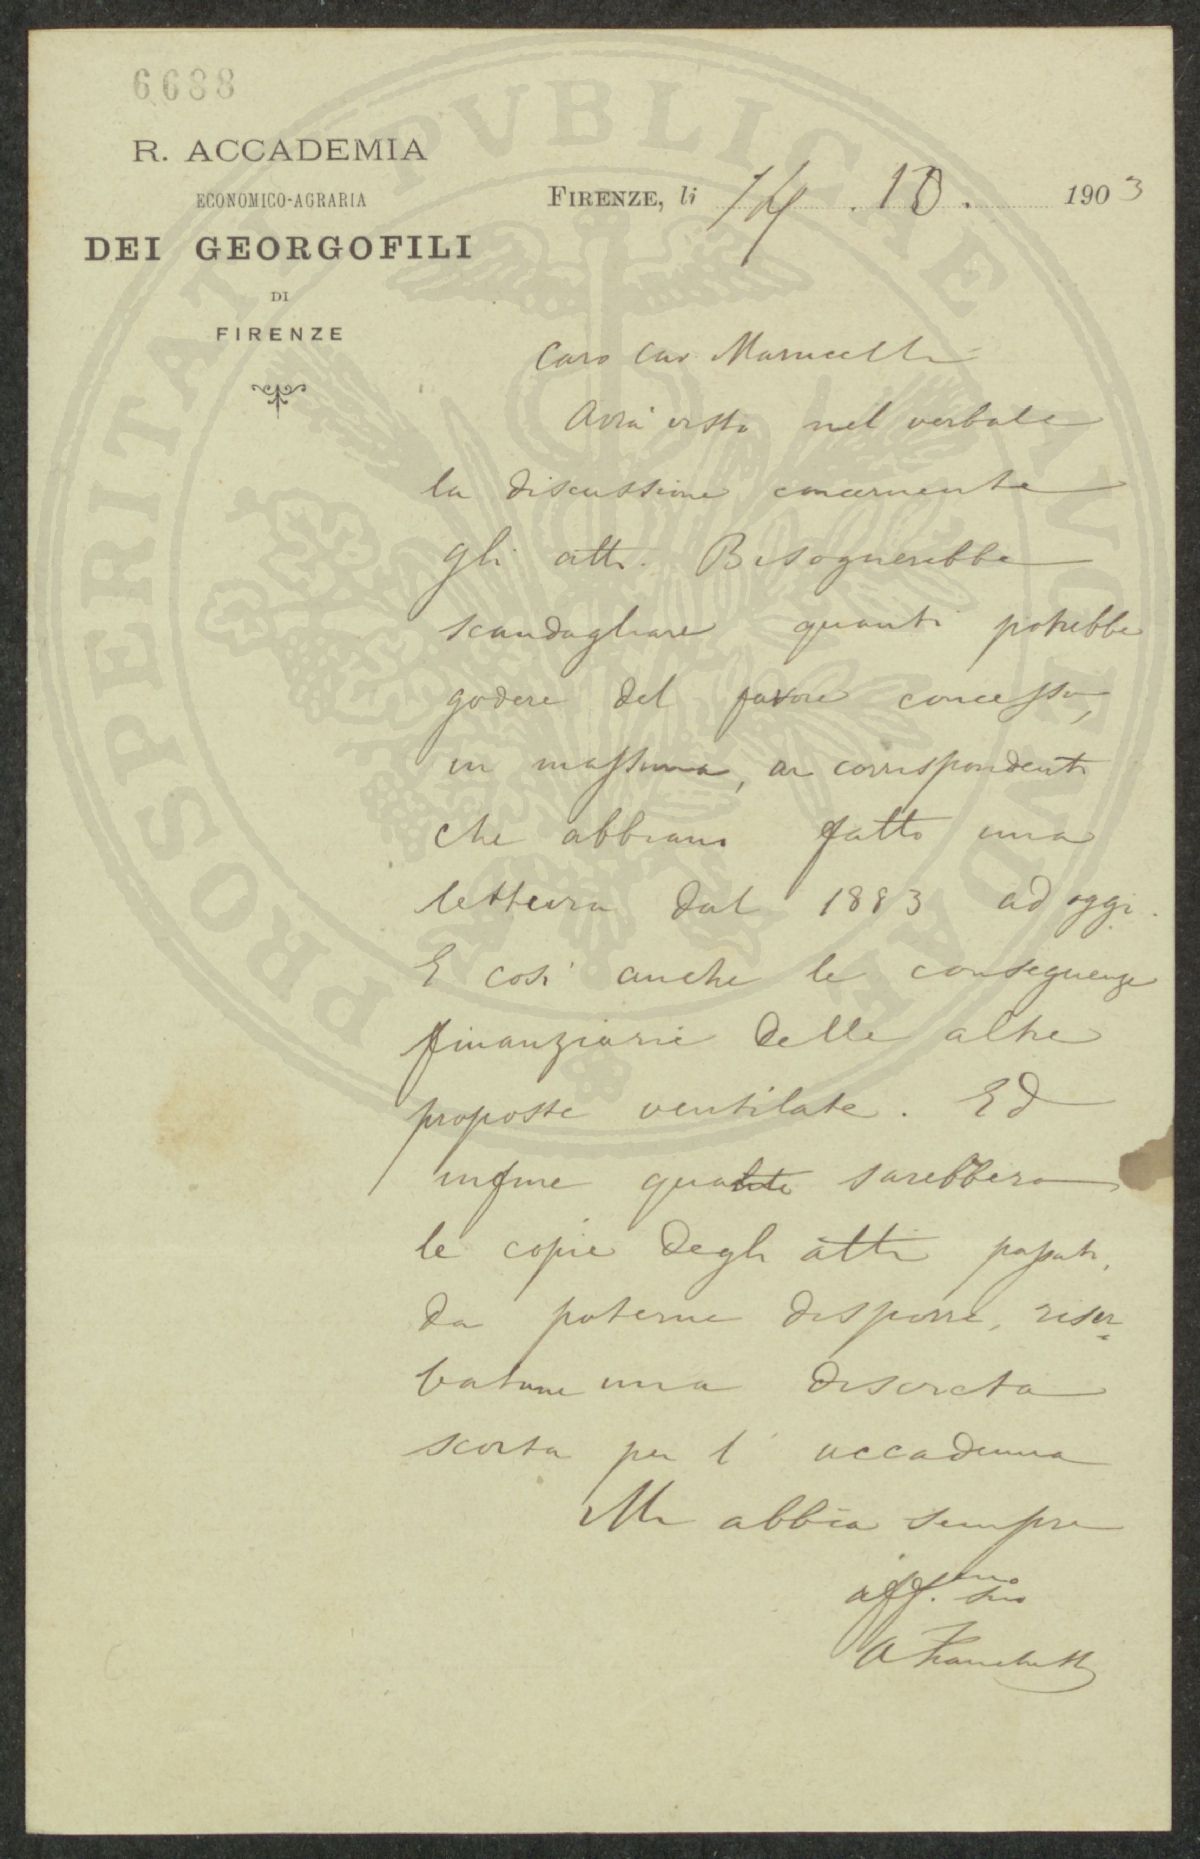 6688
R. ACCADEMIA
ECONOMICO-AGRARIA
DEI GEORGOFILI
DI
FIRENZE
FIRENZE, li 14. 10. 1903
Caro Cav Marucelli
Avrà visto nel verbale
la discussione concernente
gli atti. Bisognerebbe
scandagliare quanti potrebbe
godere del favore concesso,
in massima, ai corrispondenti
che abbiano fatto una
lettura dal 1883 ad oggi.
E così anche le conseguenze
finanziarie delle altre
proposte ventilate. Ed
infine quante sarebbero
le copie degli atti passati,
da poterne disporre, riser-
vatane una discreta
scorta per l'accademia
Mi abbia sempre
aff.mo suo
A Franchetti
PROSPERITATI PVBLICAE AVGENDAE